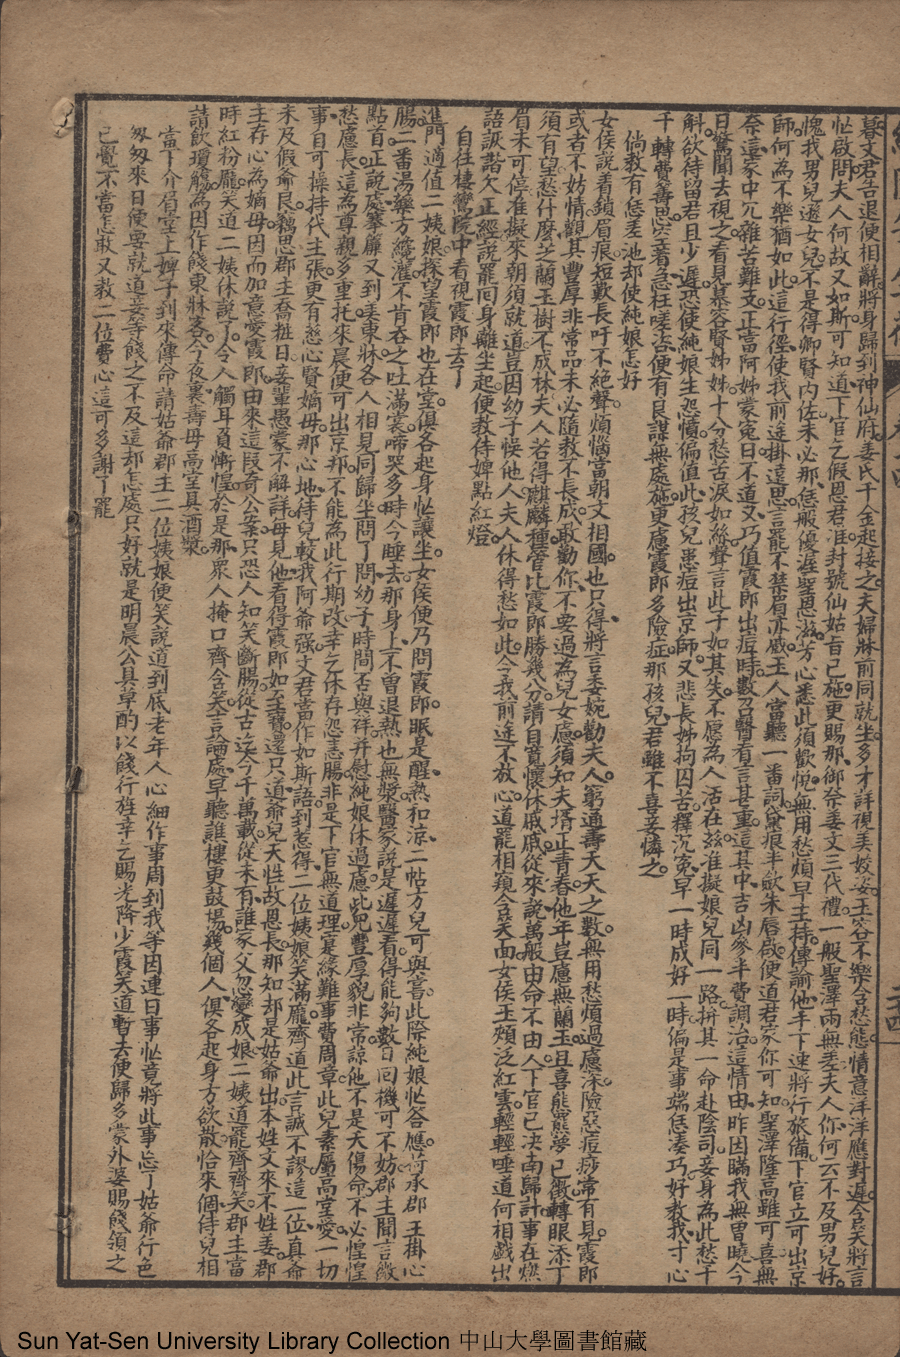 暮文君告退便相辭將身歸到神仙府姜氏千金起接之夫婦牀前同就坐多才詳視美姣姿玉容不樂含愁態情意洋洋應對遲含笑將言
忙啟問夫人何故又如斯可知道下官乞假恩君准封號仙姑旨已施更賜那御祭姜文三代禮一般聖澤兩無差夫人你何云不及男兒好
愧我男兒遜女兒不是得卿賢內佐未必那恁般優渥聖恩滋芳心悉此須歡悅無用愁煩早主持傳諭他手下速將行旅備下官立可出京
師何為不樂猶如此這行徑使我前途掛遠思言罷不禁眉亦蹙玉人當聽一番詞黛痕半斂朱唇啟便道君家你可知聖澤隆高雖可喜無
奈這家中冗雜苦難支正當阿姊蒙寃日不道又巧值霞郎出痘時數召醫看言甚重這其中吉凶參半費調治這情由昨因瞞我無曾曉今
日驚聞去視之看見慕容賢姊姊十分愁苦淚如絲聲言此子如其失不愿為人活在茲准擬娘兒同一路拚其一命赴陰司妾身為此愁千
斛欲待留君且少遲恐使純娘生怨憤偏值此孩兒患痘出京師又悲長姊拘囚苦釋沉寃早一時成好一時偏是事端恁湊巧好教我寸心
千轉費籌思空着急枉嗟咨便有良謀無處施更慮霞郎多險症那孩兒君雖不喜妾憐之
倘教有恁差池却使純娘怎好
女侯說着鎖眉痕短歎長吁不絕聲煩惱當朝文相國也只得將言委婉勸夫人窮通壽夭天之數無用愁煩過慮深險惡痘痧常有見霞郎
或者不妨情觀其豐厚非常品未必隨教不長成敢勸你不要過為兒女慮須知夫壻正青春他年豈慮無蘭玉且喜熊羆夢已徵轉眼添丁
須有望愁什麼芝蘭玉樹不成林夫人若得麒麟種管比霞郎勝幾分請自寬懷休戚戚從來說萬般由命不由人下官已决南歸計事在燃
眉未可停准擬來朝須就道豈因幼子悞他人夫人休得愁如此令我前途不放心道罷相窺含笑面女侯玉頰泛紅雲輕輕唾道何相戲出
語詼諧欠正經說罷回身離坐起便教侍婢點紅燈
自往棲鸞院中看視霞郎去了
進門適值二姨娘探望霞郎也在室俱各起身忙讓坐女侯便乃問霞郎眠是醒熱和涼二帖方兒可與嘗此際純娘忙答應荷承郡主掛心
腸二番湯藥方纔灌不肯吞之吐滿裳啼哭多時今睡去那身上不曾退熱也無漿醫家說是遲遲看得能夠數日囘機可不妨郡主聞言微
點首正說處搴簾又到美東牀各人相見同歸坐問了問幼子時間否與祥并慰純娘休過慮此兒豐厚貌非常諒他不是夭傷命不必惶惶
愁慮長這為尊親多重托來晨便可出京邦不能為此行期改幸乞休存怨恚腸非是下官無道理寔緣難事費周章此兒素屬高堂愛一切
事自可操持代主張更有慈心賢嫡母那心地待兒較我阿爺强文君當作如斯語到惹得二位姨娘笑滿龐齊道此言誠不謬這一位真爺
未及假爺良竊思郡主喬粧日妾輩愚蒙不解詳每見他看得霞郎如至寶還只道爺兒天性故恩長那知却是姑爺出本姓文來不姓姜郡
主存心為嫡母因而加意愛霞郎由來這段奇公案只恐人知笑斷腸從古迄今千萬載從未有誰家父忽變成娘二姨道罷齊齊笑郡主當
時紅粉龐笑道二姨休說了令人觸耳頁慚惶於是那衆人掩口齊含笑言論處早聽譙樓更鼓揚幾個人俱各起身方欲散恰來個侍兒相
請飲瓊觴為因作餞東牀客今夜裏壽母高堂具酒漿
當下介眉堂上婢子到來傳命請姑爺郡主二位姨娘便笑說道到底老年人心細作事周到我等因連日事忙竟將此事忘了姑爺行色
匆匆來日便要就道妾等餞之不及這却怎處只好就是明晨公具草酌以餞行旌幸乞賜光降少霞笑道暫去便歸多蒙外婆賜餞領之
已覺不當怎敢又教二位費心這可多謝了罷
Sun Yat-Sen University Library Collection 中山大學圖書館藏